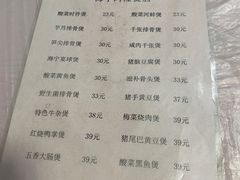 酸菜时骨煲 23元 酸菜河蚌煲 23元
芋月排骨煲 30元 千张排骨煲 30元
笋尖排骨煲 30元 咸肉千张煲 30元
海宁宴球煲 30元 猪脑豆腐煲 30元
酸菜黄鱼煲 30元 滋补骨头煲 33元
野生菌排骨煲 35元 猪手黄豆煲 35元
特色牛杂煲 38元 梅菜烧肉煲 38元
红烧鸭掌煲 39元 猪尾巴黄豆煲 39元
五香大肠煲 39元 酸菜黑鱼煲 39元